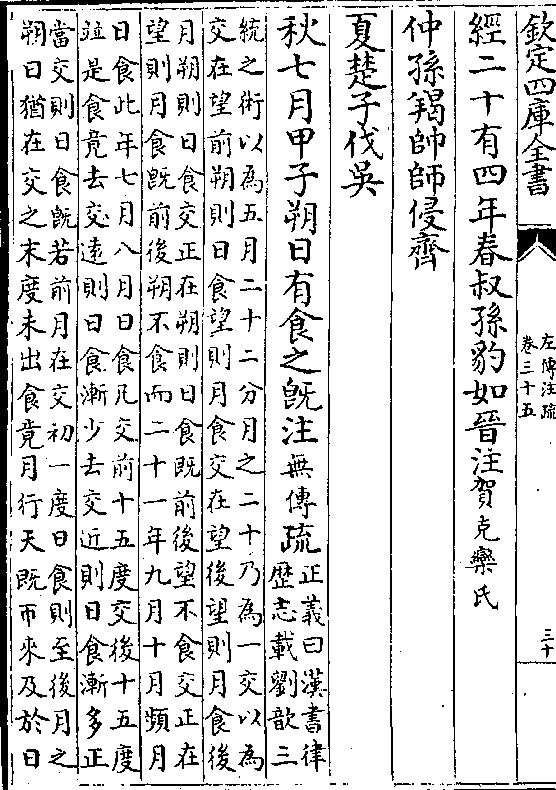 欽定四庫全書
左傳注疏
卷三十五
三十
經二十有四年春叔孫豹如晉注賀克欒氏
仲孫羯帥師侵齊
夏楚子伐吳
秋七月甲子朔日有食之既注無傳疏正義曰漢書律
歴志載劉歆三
統之術以為五月二十二分月之二十乃為一交以為
交在望前朔則日食望則月食交在望後望則月食後
月朔則日食交正在朔則日食既前後望不食交正在
望則月食既前後朔不食而二十一年九月十月頻月
日食此年七月八月日食凡交前十五度交後十五度
竝是食竟去交逺則日食漸少去交近則日食漸多正
當交則日食既若前月在交初一度日食則至後月之
朔日猶在交之末度未出食竟月行天既帀來及於日